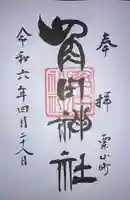 奉拝 栗山町
角田神社
令和六年四月二十八日